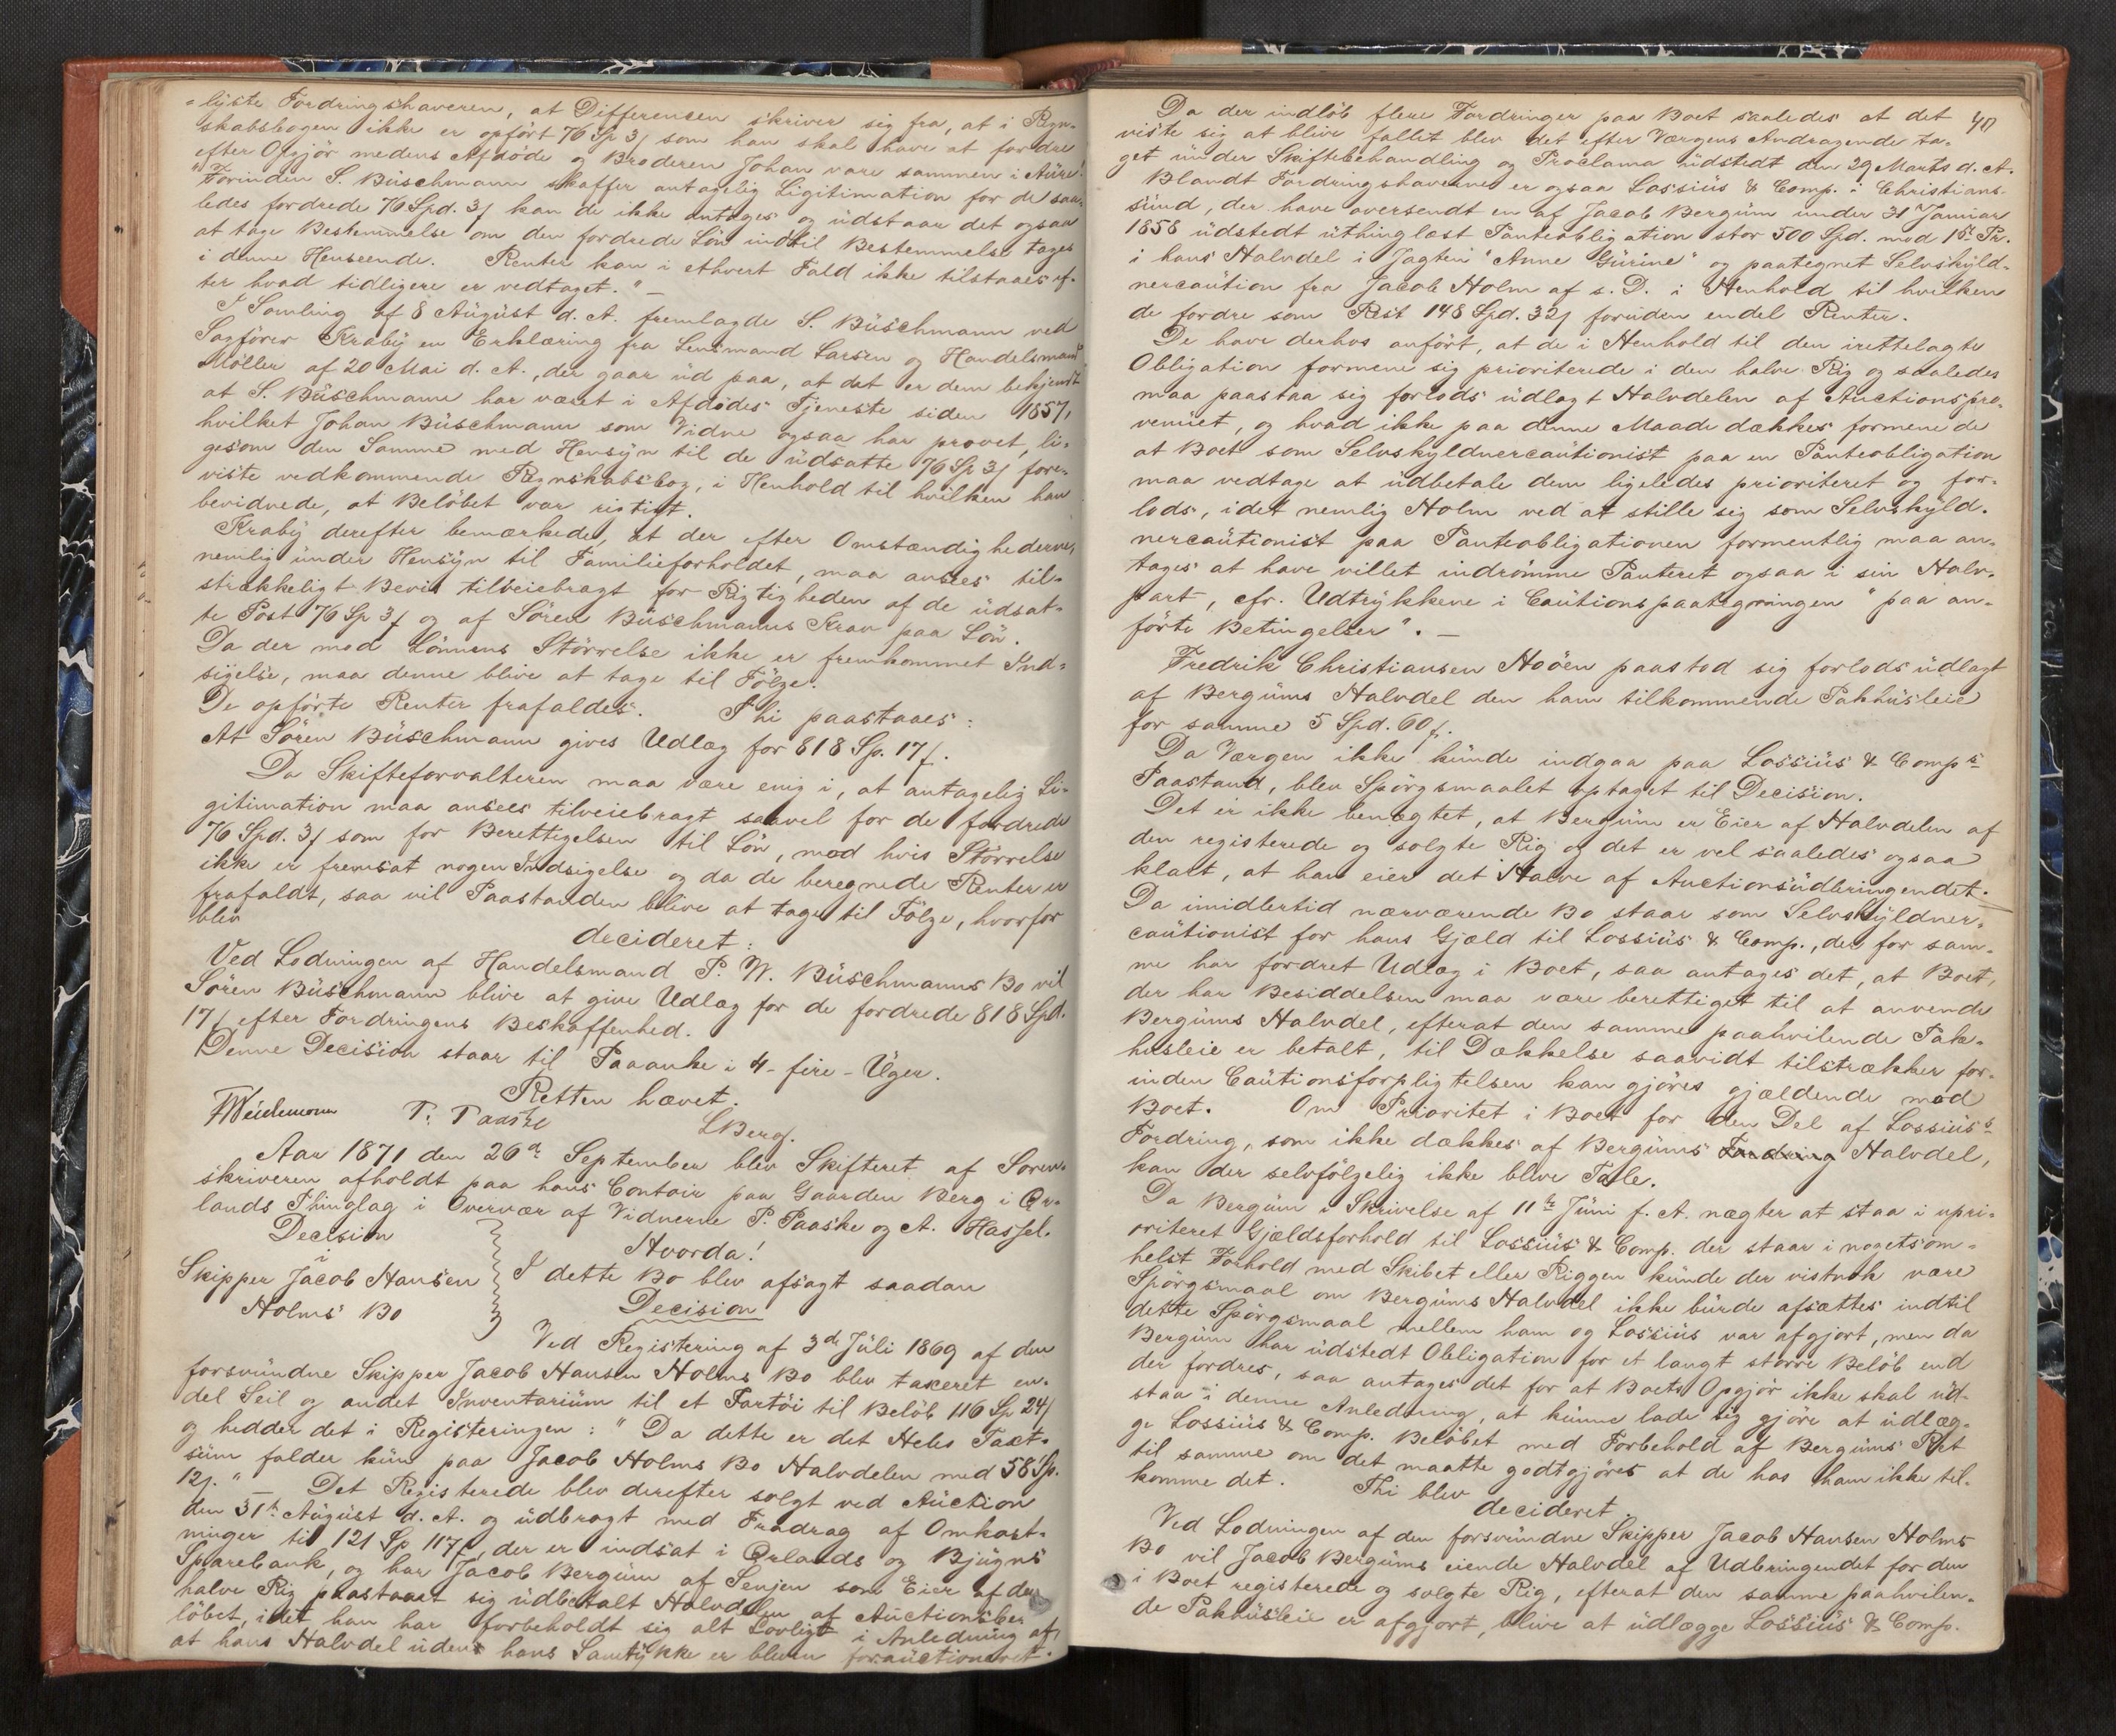 =lyste Fordringshaveren, at Differencen skriver sig fra, at i Regn-
skabsbogen ikke er opført 76 Sp 3ſ som han skal have at fordre
efter Opgjør medens Afdøde og Broderen Johan vare sammen i Aure!
"Forinden S. Büschmann skaffer antagelig Ligitimation for de saa-
ledes fordrede 76 Spd. 3ſ kan de ikke antages og udstaar det ogsaa
at tage Bestemmelse om den fordrede Løn indtil Bestemmelse tages
i denne Henseende. Renter kan i ethvert Fald ikke tilstaaes ef-
ter hvad tidligere er vedtaget." —
I Samling af 8 August d. A. fremlagde S. Büschmann ved
Sagfører Kraby en Erklæring fra Lensmand Larsen og Handelsmand
Möller af 20 Mai d. A., der gaar ud paa, at det er dem bekjendt
at S. Büschmann har været i Afdødes Tjeneste siden 1857,
hvilket Johan Büschmann som Vidne ogsaa har provet, li-
gesom den Samme med Hensyn til de udsatte 76 Sp 3ſ fore-
viste vedkommende Regnskabsbog, i Henhold til hvilken han
bevidnede, at Beløbet var rigtigt.
Kraby derefter bemærkede, at der efter Omstændighederne,
nemlig under Hensyn til Familieforholdet, maa ansees til-
strækkeligt Bevis tilveiebragt for Rigtigheden af de udsat-
te Post 76 Sp 3ſ og af Søren Büschmanns Krav paa Løn.
Da der mod Lønnens Størrelse ikke er fremkommet Ind-
sigelse, maa denne blive at tage til Følge.
De opførte Renter frafaldes. Thi paastaaes:
At Søren Büschmann gives Udlæg for 818 Sp. 17ſ.
Da Skifteforvalteren maa være enig i, at antagelig Li-
gitimation maa ansees tilveiebragt saavel for de fordrede
76 Spd. 3ſ som for Berettigelsen til Løn, mod hvis Størrelse
ikke er fremsat nogen Indsigelse og da de beregnede Renter er
frafaldt, saa vil Paastanden blive at tage til Følge, hvorfor
blev
decideret:
Ved Lodningen af Handelsmand P. W. Büschmanns Bo vil
Søren Büschmann blive at give Udlæg for de fordrede 818 Spd.
17ſ efter Fordringens Beskaffenhed.
Denne Decision staar til Paaanke i 4 - fire - Uger.
Retten hævet.
P. Paaske LBerg.
Aar 1871 den 26de September blev Skifteret af Soren-
skriveren afholdt paa hans Contoir paa Gaarden Berg i Ør-
lands Thinglag i Overvær af Vidnerne P. Paaske og A. Hassel.
Decision
i
Skipper Jacob Hansen
Holms Bo
Hvorda!
I dette Bo blev afsagt saadan
Decision
Ved Registering af 3de Juli 1869 af den
forsvundne Skipper Jacob Hansen Holms Bo blev taxeret en-
del Seil og andet Inventarium til et Fartøi til Beløb 116 Sp 24ſ
og hedder det i Registeringen: "Da dette er det Heles Taxt-
sum falder kun paa Jacob Holms Bo Halvdelen med 58 Sp.
12ſ." — Det Registerede blev derefter solgt ved Auction
den 31te August d. A. og udbragt med Fradrag af Omkost-
ninger til 121 Sp 117ſ, der er indsat i Ørlands og Bjugns
Sparebank, og har Jacob Bergum af Senjen som Eier af den
halve Rig paastaaet sig udbetalt Halvdelen af Auctionsbe-
løbet, idet han har forbeholdt sig alt Lovligt i Anledning af,
at hans Halvdel uden hans Samtykke er bleven forauctioneret.
40
Da der indløb flere Fordringer paa Boet saaledes at det
viste sig at blive fallit blev det efter Værgens Andragende ta-
get under Skiftebehandling og Proclama udstedt den 29 Marts d. A.
Blandt Fordringshaverne er ogsaa Lossius & Comp. i Christians-
sund, der have oversendt en af Jacob Bergum under 31te Januar
1858 udstedt uthinglæst Panteobligation stor 500 Spd. mod 1ste Pr.
i hans Halvdel i Jagten "Anne Gurine" og paategnet Selvskyld-
nercaution fra Jacob Holm af s. D. i Henhold til hvilken
de fordre som Rest 148 Spd. 32ſ foruden endel Renter.
De have derhos anført, at de i Henhold til den irettelagte
Obligation formene sig prioriterede i den halve Rig og saaledes
maa paastaa sig forlods udlagt Halvdelen af Auctionspro-
venuet, og hvad ikke paa denne Maade dækkes formene de
at Boet som Selvskyldnercautionist paa en Panteobligation
maa vedtage at udbetale dem ligeledes prioriteret og for-
lods, idet nemlig Holm ved at stille sig som Selvskyld-
nercautionist paa Panteobligationen formentlig maa an-
tages at have villet indrømme Panteret ogsaa i sin Halv-
part, cfr. Udtrykkene i Cautionspaategningen "paa an-
førte Betingelser". —
Fredrik Christiansen Hoøen paastod sig forlods udlagt
af Bergums Halvdel den ham tilkommende Pakhusleie
for samme 5 Spd. 60ſ.
Da Værgen ikke kunde indgaa paa Lossius & Comps
Paastand, blev Spørgsmaalet optaget til Decision.
Det er ikke benægtet, at Bergum er Eier af Halvdelen af
den registerede og solgte Rig og det er vel saaledes ogsaa
klart, at han eier det Halve af Auctionsudbringendet.
Da imidlertid nærværende Bo staar som Selvskyldner-
cautionist for hans Gjæld til Lossius & Comp., der for sam-
me har fordret Udlæg i Boet, saa antages det, at Boet,
der har Besiddelsen maa være berettiget til at anvende
Bergums Halvdel, efterat den samme paahvilende Pak-
husleie er betalt, til Dækkelse saavidt tilstrækker for-
inden Cautionsforpligtelsen kan gjøres gjældende mod
Boet. Om Prioritet i Boet for den Del af Lossius's
Fordring, som ikke dækkes af Bergums Fordring Halvdel,
kan der selvfølgelig ikke blive Tale.
Da Bergum i Skrivelse af 11te Juni f. A. nægter at staa i upri-
oriteret Gjældsforhold til Lossius & Comp. der staar i nogetsom-
helst Forhold med Skibet eller Riggen kunde der vistnok være
Spørgsmaal om Bergums Halvdel ikke burde afsættes indtil
dette Spørgsmaal mellem ham og Lossius var afgjort, men da
Bergum har udstedt Obligation for et langt større Beløb end
der fordres, saa antages det for at Boets Opgjør ikke skal ud-
staa i denne Anledning, at kunne lade sig gjøre at udlæg-
ge Lossius & Comp. Beløbet med Forbehold af Bergums Ret
til samme om det maatte godtgjøres at de hos ham ikke til-
komme det. Thi blev
decideret
Ved Lodningen af den forsvundne Skipper Jacob Hansen Holms
Bo vil Jacob Bergums eiende Halvdel af Udbringendet for den
i Boet registerede og solgte Rig, efterat den samme paahvilen-
de Pakhusleie er afgjort, blive at udlægge Lossius & Comp.